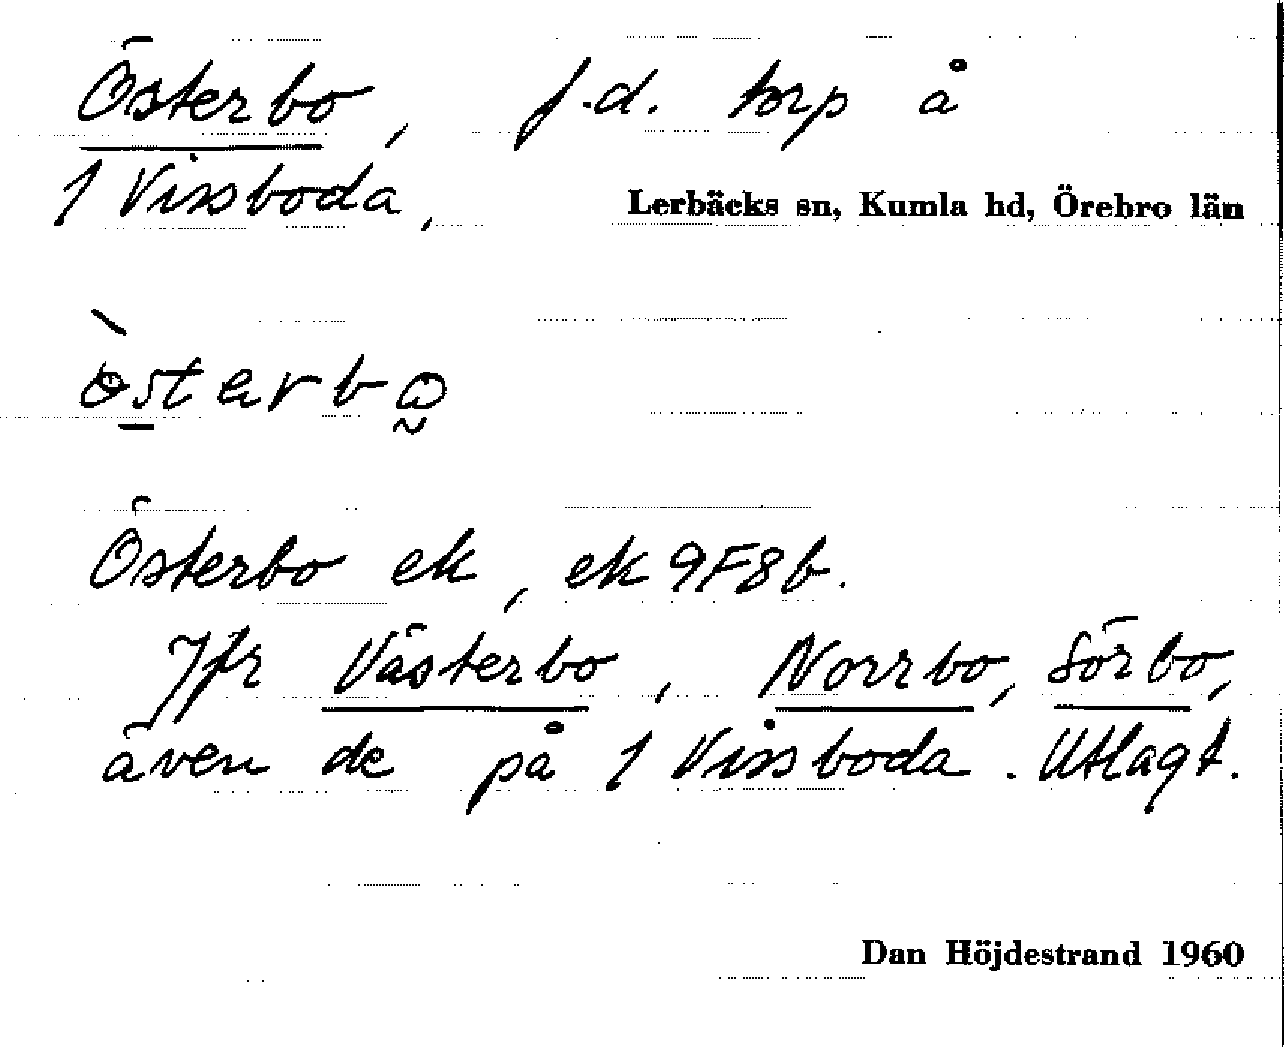 Österbo, f.d. torp å
1 Vissboda, Lerbäcks sn, Kumla hd, Örebro län
Österbo ek, ek 9F8b.
Jfr Västerbo, Norrbo, Sörbo,
även de på 1 Vissboda. Utlagt.
Dan Höjdestrand 1960